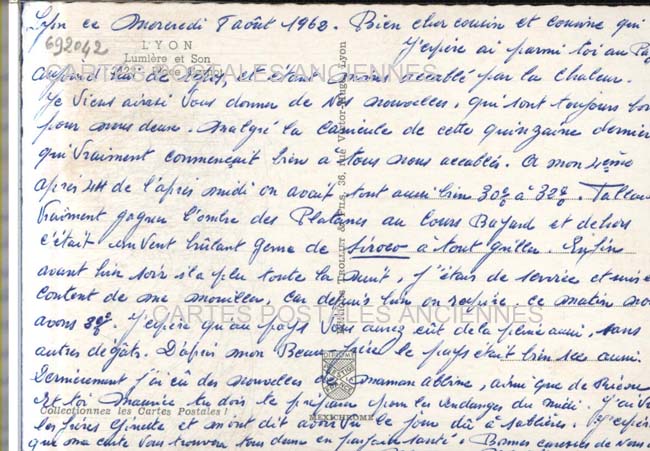 Lyon ce Mercredi 7 août 1963. Bien cher cousin et cousine qui
692042
LYON
Lumière et Son
J'espère ai parmi toi au
CARTES POSTALES ANCIENNES
aujourd'hui de repos, et étant moins accablé par la chaleur.
Je viens ainsi vous donner de nos nouvelles, qui sont toujours
pour nous deux. malgré la canicule de cette quinzaine
qui vraiment commençait bien à tous nous accablés. A mon
après de l'après midi on avait tout aussi bien 30° à 32°.
vraiment gagner l'ombre des Platanes au Cours Bayard et dehors
c'était un vent brûlant genre de Siroco à tout griller. Enfin
avant hier soir il a plu toute la nuit, j'étais de service et suis
content de me mouiller, car depuis on respire. ce matin
CARTES POSTALES ANCIENNES
avons J'espère qu'au pays vous aurez eût de la pluie aussi, sans
autres dégâts. D'après mon Beau-frère le pays était bien sec aussi.
Dernièrement j'ai eû des nouvelles de maman ainsi que de
Et toi Maurice tu dois te préparer pour les vendanges du midi. J'ai
Collectionnez les Cartes Postales !
MEXICHROME
les frères et m'ont dit avoir vu le jour dû à sablières.
que ma carte vous trouvera tous deux en parfaite santé. Bonnes caresses de nous
TROLLIET & FILS, 36, rue Victor-Hugo, Lyon